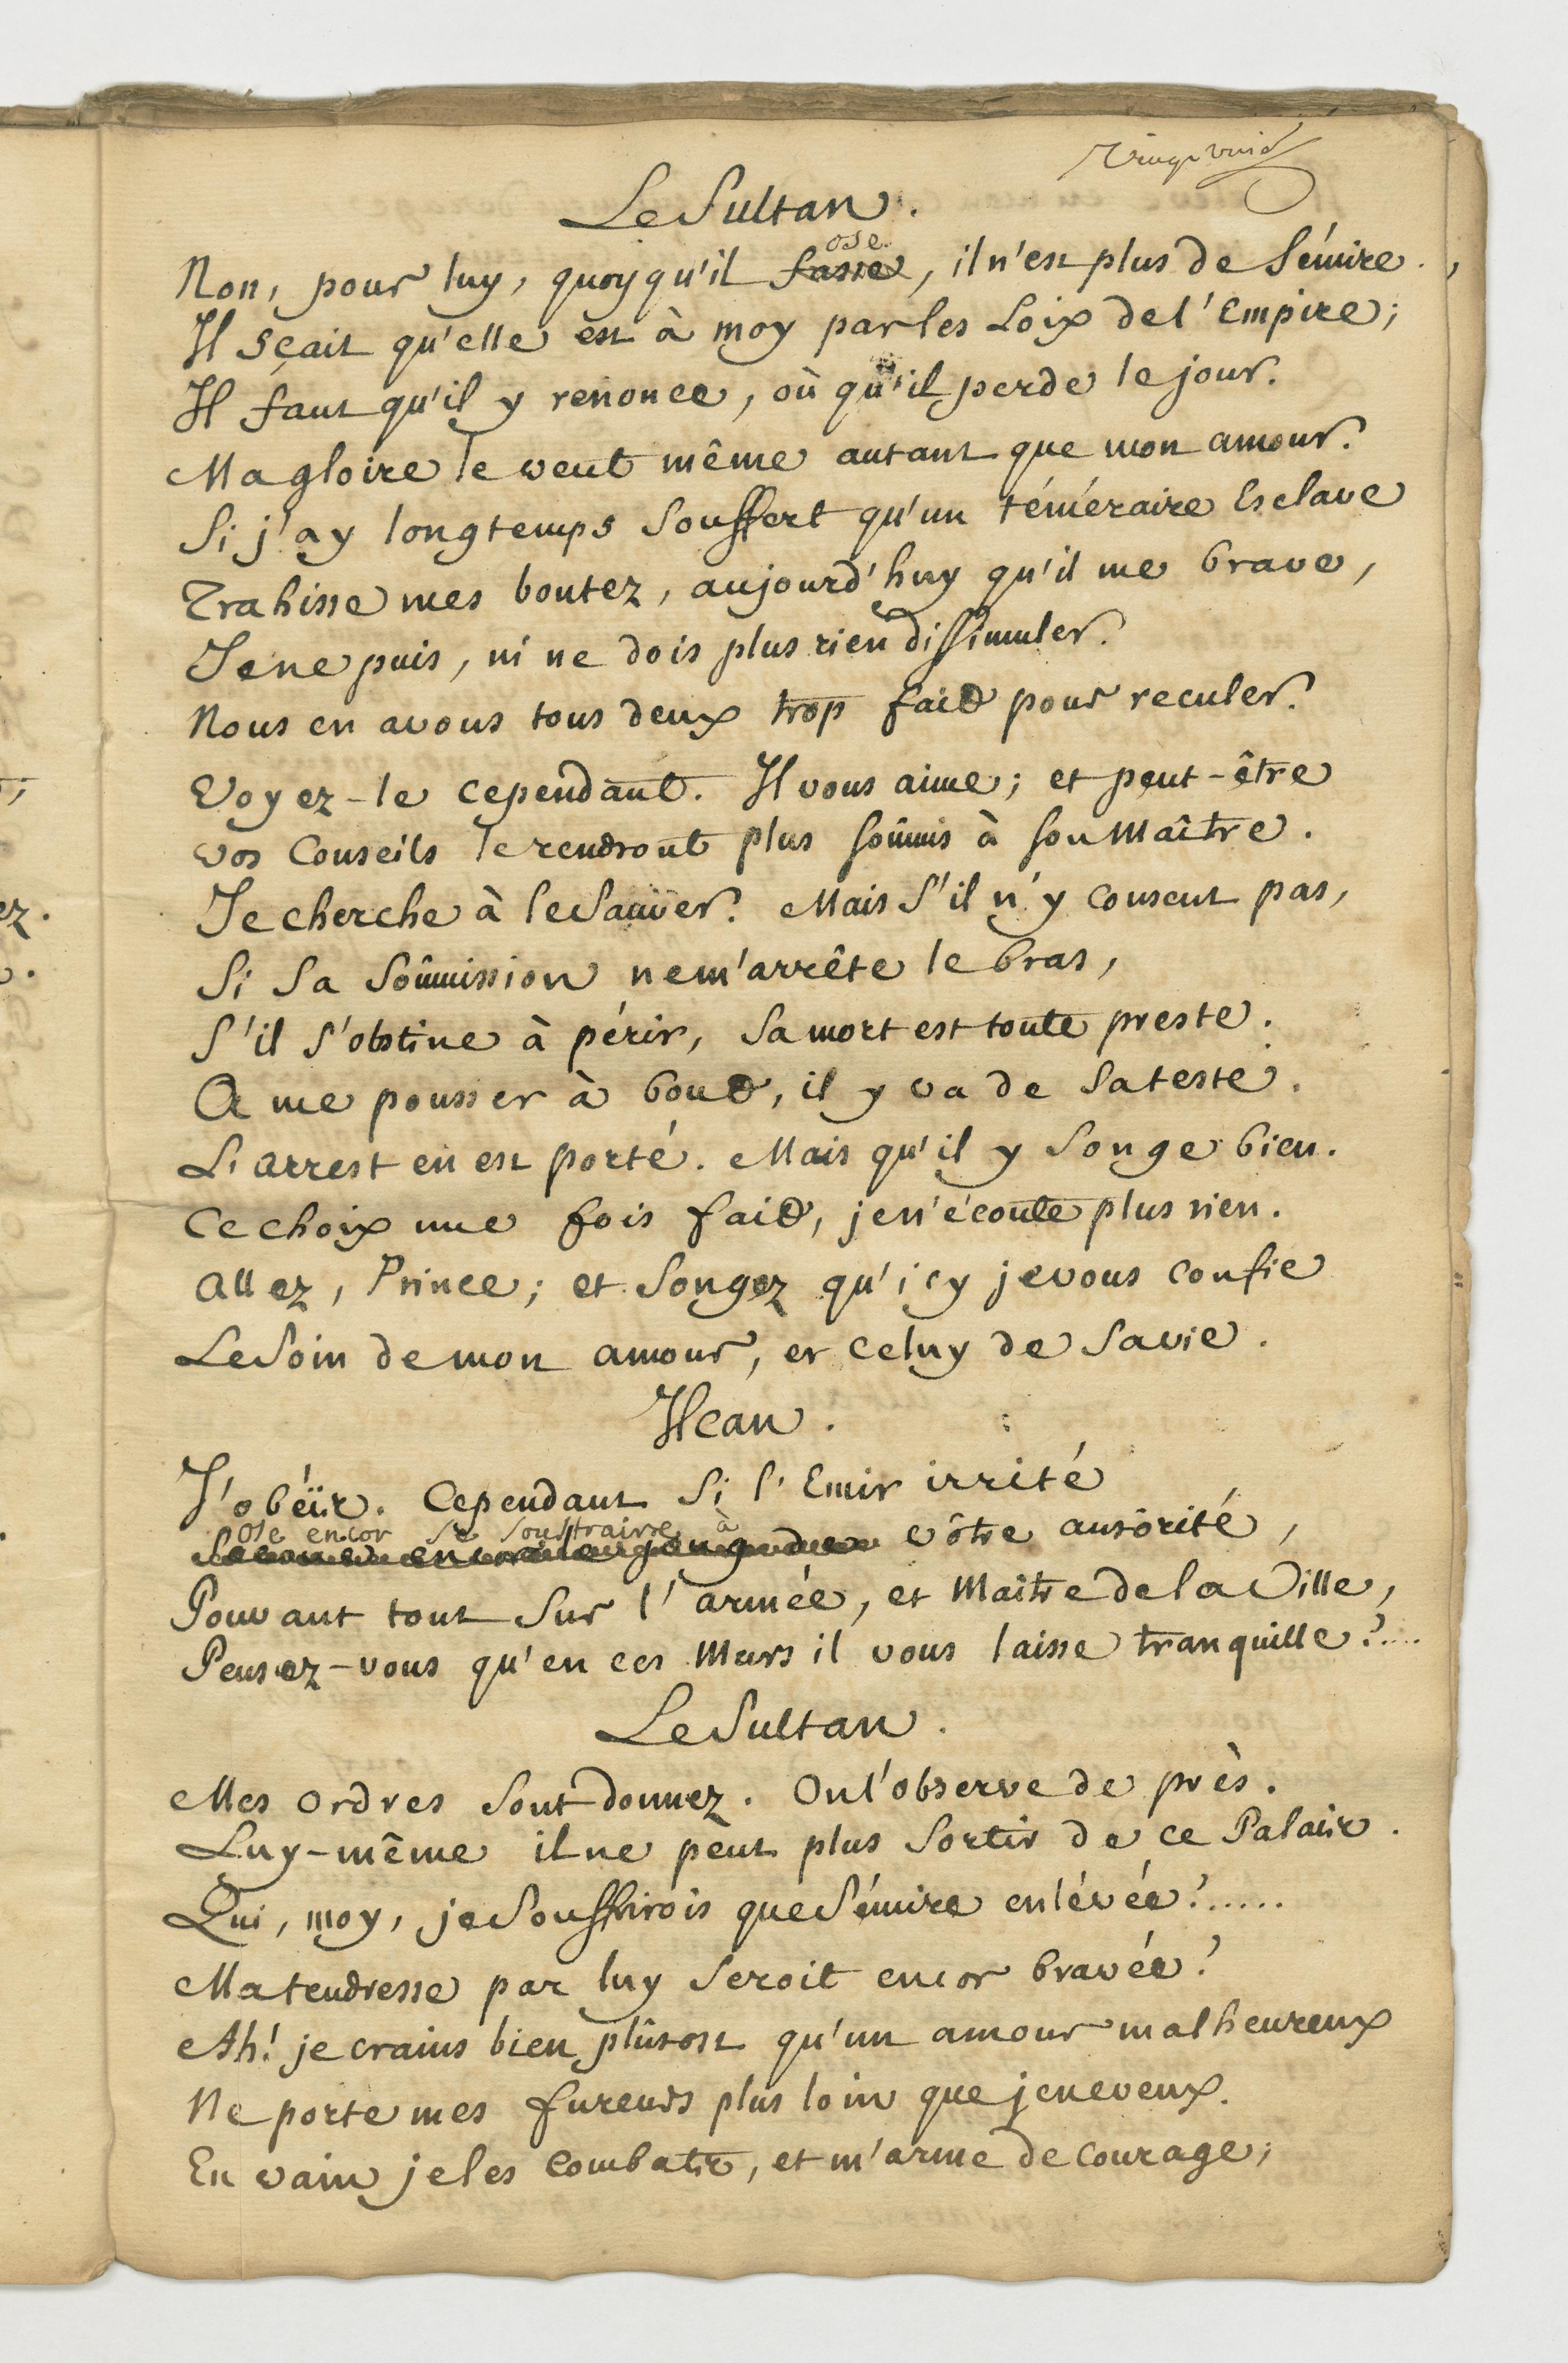 Le Sultan.
Non, pour luy, quoyqu'il ose fasse, il n'est plus de Sémire.
Il sçait qu'elle est à moy par les Loix de l'Empire;
Il faut qu'il y renonce, où qu'il perde le jour.
Ma gloire le veut même autant que mon amour.
Si j'ay longtemps souffert qu'un téméraire Esclave
Trahisse mes bontez, aujourd'huy qu'il me brave,
Je ne puis, ni ne dois plus rien dissimuler.
Nous en avons tous deux trop fait pour reculer.
Voyez-le cependant. Il vous aime; et peut-être
vos Conseils le rendront plus soûmis à son Maître.
Je cherche à le sauver. Mais s'il n'y consent pas,
Si sa soûmission ne m'arrête le bras,
S'il s'obstine à périr, sa mort est toute preste.
A me pousser à bout, il y va de sa teste.
L'arrest en est porté. Mais qu'il y songe bien.
Ce choix une fois fait, je n'écoute plus rien.
Allez, Prince; et songez qu'icy je vous confie
Le soin de mon amour, et celuy de sa vie.
Ilcan.
J'obéïs. Cependant si l'Emir irrité
Ose encor se soustraire à
vôtre autorité,
Pouvant tout sur l'armée, et Maître de la Ville,
Pensez-vous qu'en ces Murs il vous laisse tranquille?....
Le Sultan.
Mes ordres sont donnez. On l'observe de près.
Luy-même il ne peut plus sortir de ce Palais.
Qui, moy, je souffrirois que Sémire enlévée!.....
Ma tendresse par luy seroit encor bravée!
Ah! je crains bien plûtost qu'un amour malheureux
Ne porte mes fureurs plus loin que je ne veux.
En vain je les combats, et m'arme de courage;